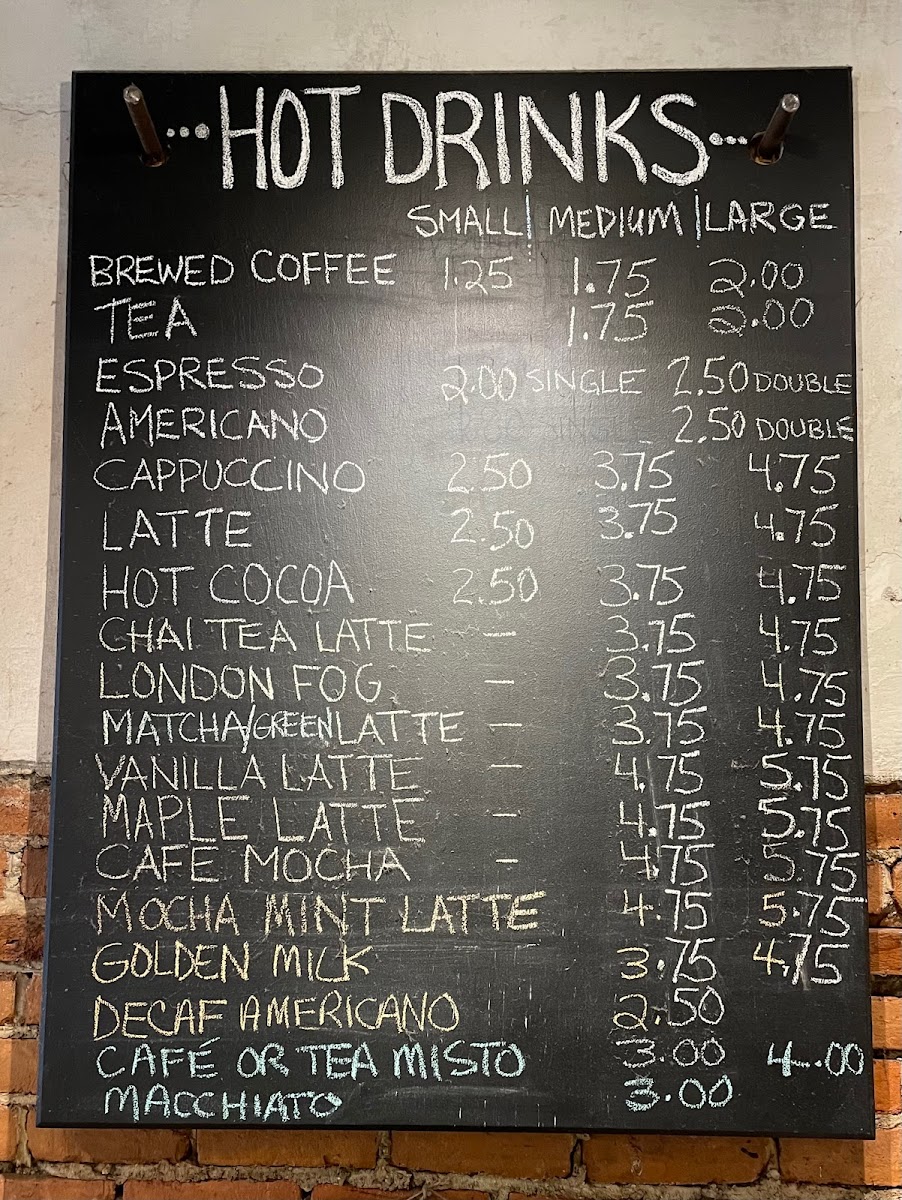 ...HOT DRINKS...
SMALL | MEDIUM | LARGE
BREWED COFFEE 1.25 1.75 2.00
TEA 1.75 2.00
ESPRESSO 2.00 SINGLE 2.50 DOUBLE
AMERICANO 2.50 DOUBLE
CAPPUCCINO 2.50 3.75 4.75
LATTE 2.50 3.75 4.75
HOT COCOA 2.50 3.75 4.75
CHAI TEA LATTE — 3.75 4.75
LONDON FOG — 3.75 4.75
MATCHA/GREEN LATTE — 3.75 4.75
VANILLA LATTE — 4.75 5.75
MAPLE LATTE — 4.75 5.75
CAFE MOCHA - 4.75 5.75
MOCHA MINT LATTE 4.75 5.75
GOLDEN MILK 3.75 4.75
DECAF AMERICANO 2.50
CAFÉ OR TEA MISTO 3.00 4.00
MACCHIATO 3.00